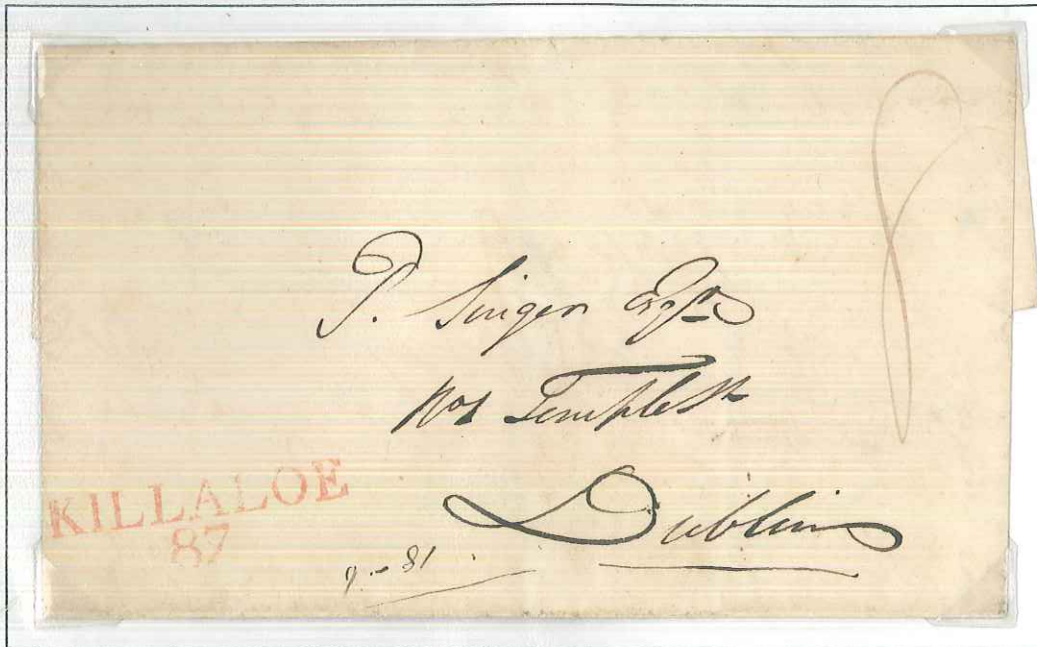 P. Singer Esqre
No 1 Temple St
Dublin
KILLALOE
87
8